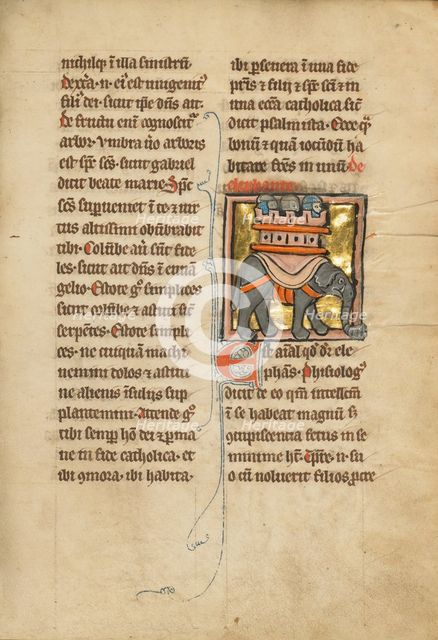 nichilq; ĩ illa sinistrũ
dext̃a · n · ei9 est unigenit9
fili9 dei · sicut ip̃e dñs ait ·
De fructu enĩ cognoscit̃
arbor · Vmbra ũo arboris
est sp̃c sc̃s · sicut gabriel
dicit beate marie · Sp̃c
sc̃s superueniet ĩ te ⁊ uir
tus altissimi obũbrabit
tibi · Columbe aũ sunt fide
les · sicut ait dñs ĩ euuã
gelio · Estote g̊ simplices
sicut colũbe ⁊ astuti sic̃
serpentes · Estote simpli
ces · ne cuiquam machi
nemini dolos ⁊ astuti
ne alienis ĩsidiis sup
plantemini · Attende g̊
tibi semp hõ dei ⁊ p̱ma
ne in fide catholica · et
ibi 9mora · ibi habita ·
ibi p̱seuera ĩ una fide
pr̃is ⁊ filii ⁊ sp̃c sc̃i ⁊ in
una ecc̃a catholica sic̃
dicit psalmista · Ecce q̃
bonũ ⁊ quã iocũdũ ha
bitare fr̃es in unũ · De
elephante
Est aĩal qd̃ dr̃ ele
phãs · Physiolog9
dicit de eo qm̃ intellc̃m
ĩ se habeat magnũ ·
9cupiscentia fetus in se
minime hr̃t · Tp̃re · n · su
o cũ uoluerit filios p̱cre
Heritage
Heritage
Heritage
Heritage